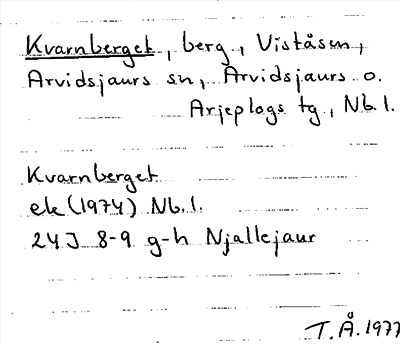 Kvarnberget, berg, Viståsen,
Arvidsjaurs sn, Arvidsjaurs o.
Arjeplogs tg, Nb. l.
Kvarnberget
ek (1974) Nb. l.
24J 8-9 g-h Njallejaur
T.Å. 1977